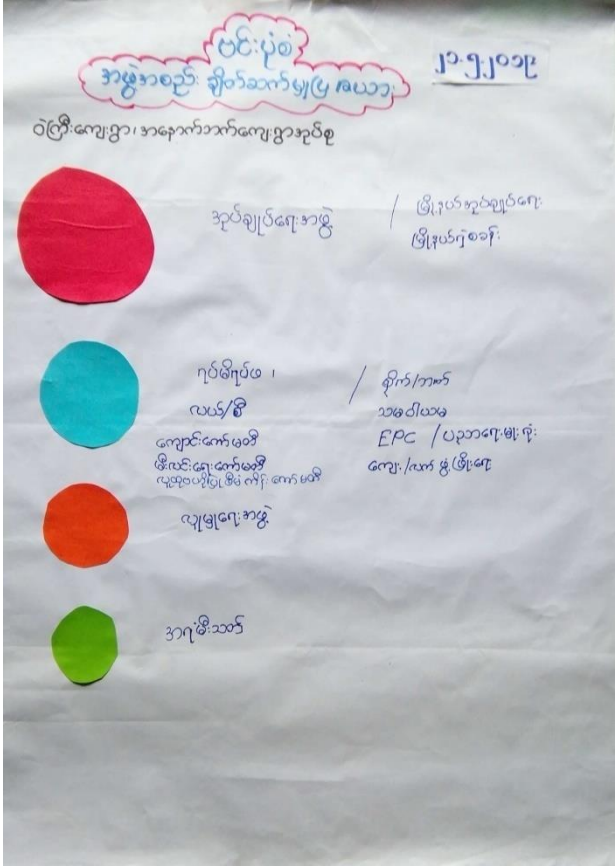 ဗင်းပုံစံ
အဖွဲ့အစည်း ချိတ်ဆက်မှုပြ ဇယား
၂၁.၅.၂၀၁၉
ဝဲကြီးကျေးရွာ၊ အနောက်ဘက်ကျေးရွာအုပ်စု
အုပ်ချုပ်ရေးအဖွဲ့ / မြို့နယ်အုပ်ချုပ်ရေး
မြို့နယ်ရဲစခန်း
ရပ်မိရပ်ဖ ၊ / စိုက်/ဘဏ်
လယ်/စီ သမဝါယမ
ကျောင်းကော်မတီ EPC / ပညာရေးမှူးရုံး
မီးလင်းရေးကော်မတီ ကျေး/လက် ဖွံ့ဖြိုးရေး
လူထုဗဟိုပြုစီမံကိန်းကော်မတီ
လူမှုရေးအဖွဲ့
အရံမီးသတ်